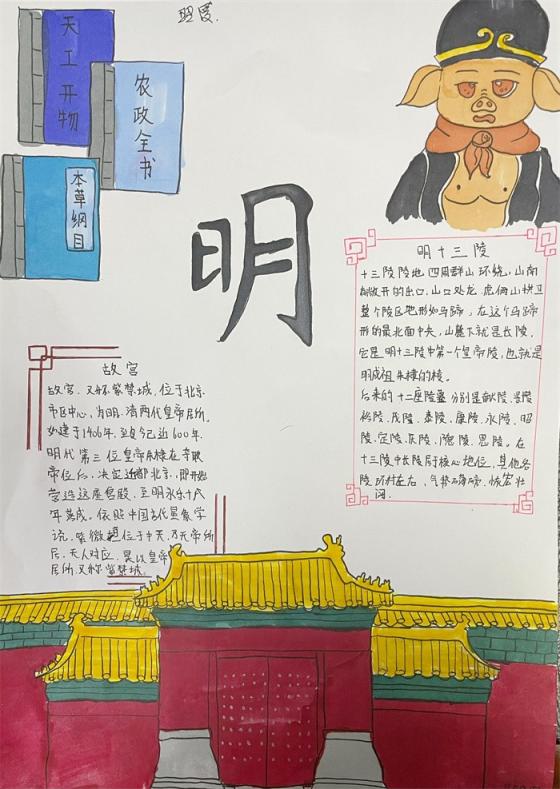 天工开物
农政全书
本草纲目
明
明十三陵
十三陵陵地四周群山环绕，山南
敞开的出口，山口处龙、虎俩山拱卫
整个陵区地形如马蹄，在这个马蹄
形的最北面中央，山麓下就是长陵，
它是明十三陵中第一个皇帝陵，也就是
明成祖朱棣的陵。
后来的十二座陵墓分别是献陵、景陵
裕陵、茂陵、泰陵、康陵、永陵、昭
陵、定陵、庆陵、德陵、思陵。在
十三陵中长陵居核心地位，其他各
陵 左右，气势磅礴，恢宏壮
阔。
故宫
故宫，又称紫禁城，位于北京
市区中心，为明、清两代皇帝居所。
始建于1406年，至今已近600年。
明代第三位皇帝朱棣在夺取
帝位后，决定迁都北京，即开始
营造这座宫殿，至明永乐十八
年落成。依照中国古代星象学
说，紫微垣位于中天，乃天帝所
居，天人对应，是以皇帝
居所又称紫禁城。